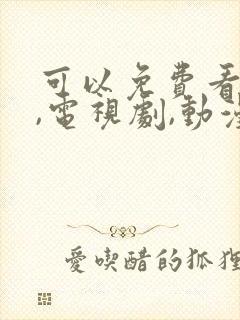 可以免費看
,電視劇,動漫
愛喫醋的狐狸